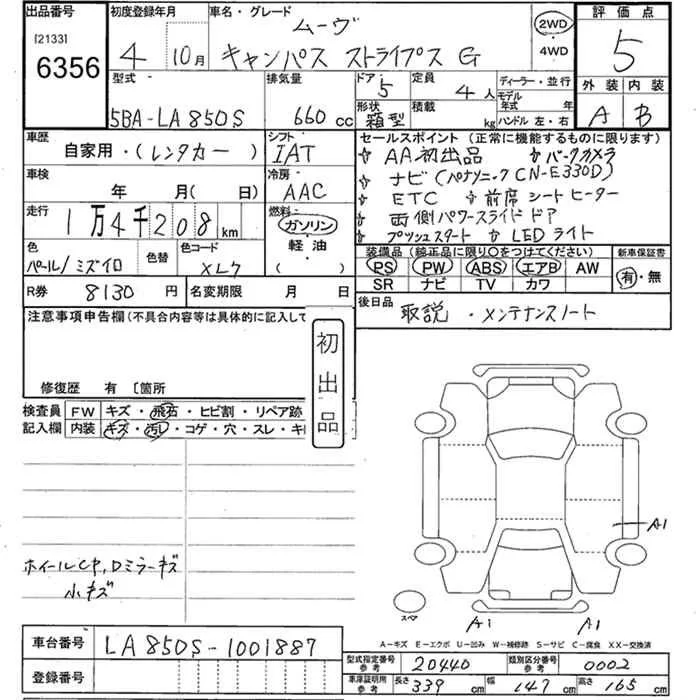 出品番号
[2133]
6356
初度登録年月
4 10月
車名・グレード
ムーヴ
キャンバス ストライプス G
2WD
・4WD
評価点
5
外装 内装
A B
型式
5BA-LA850S
排気量
660 cc
ドア
5
形状
箱型
定員
4人
積載
kg
ディーラー・並行
モデル年式 年
ハンドル 左・右
車歴
自家用・(レンタカー)
シフト
IAT
車検
年 月(日)
冷房
AAC
走行
1万4千208km
燃料
ガソリン
・軽油・
( )
色
パール/ミズイロ
色替
色コード
XL7
R券 8130 円
名変期限 月 日
セールスポイント(正常に機能するものに限ります)
☆ AA初出品 ☆ バックカメラ
☆ ナビ(パナソニック CN-E330D)
☆ ETC ☆ 前席シートヒーター
☆ 両側パワースライドドア
☆ プッシュスタート ☆ LEDライト
装備品(純正品に限り○をつけてください)
PS PW ABS エアB AW
SR ナビ TV カワ
新車保証書
有・無
後日品
取説・メンテナンスノート
注意事項申告欄(不具合内容等は具体的に記入して
初出品
修復歴 有 〔箇所
検査員記入欄
FW キズ・飛石・ヒビ割・リペア跡
内装 キズ・汚レ・コゲ・穴・スレ・キ
ホイールCP,Dミラーキズ
小キズ
A1
スペア
A1 A1
A-キズ E-エクボ U-凹み W-補修跡 S-サビ C-腐食 XX-交換済
車台番号 LA850S-1001887
登録番号
型式指定番号参考 20440
類別区分番号参考 0002
車庫証明用参考 長さ 339 cm 幅 147 cm 高さ 165 cm